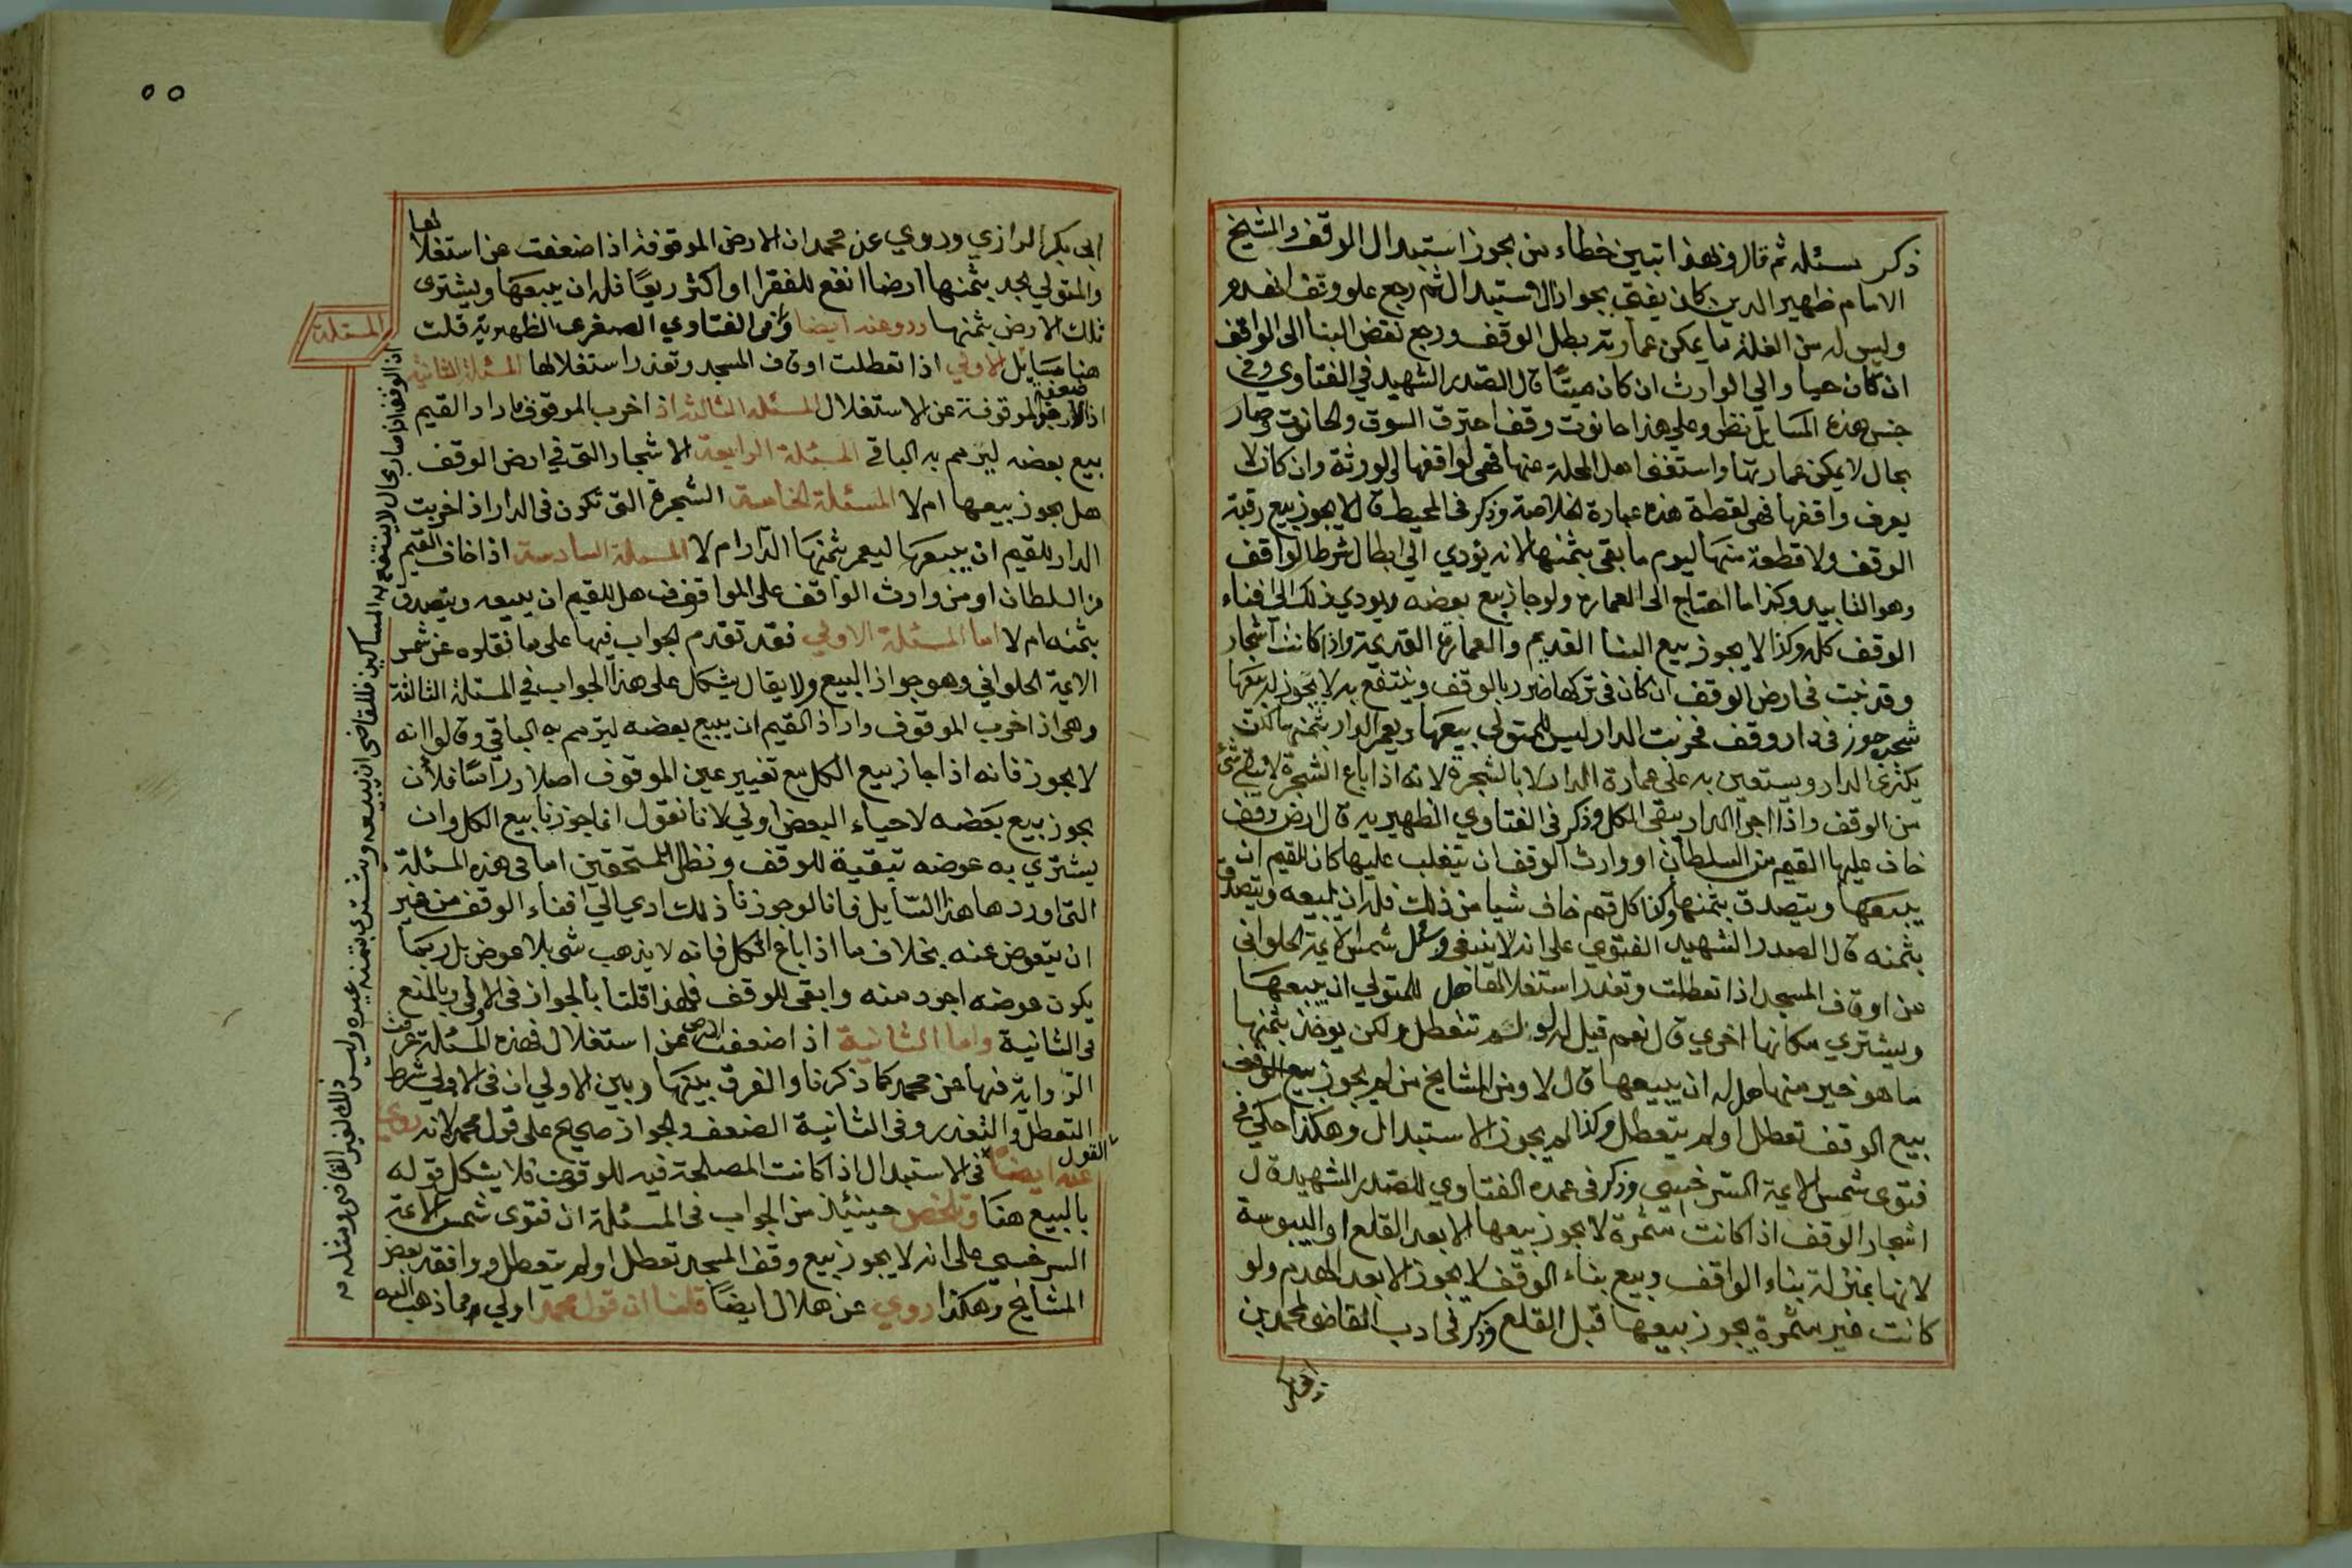 ذكر مسئله ثم قال وبهذا تبين خطاء من يجوز استبدال الوقف والشيخ
الامام ظهير الدين كان يفتي بجواز الاستبدال ثم رجع علو وقف انهدم
وليس له من الغلة ما يمكن عمارته بطل الوقف ورجع نقض البنا الى الواقف
ان كان حيا والي الوارث ان كان ميتا قال الصدر الشهيد في الفتاوي وفي
جنس هذه المسايل نظر وعلي هذا حانوت وقف احترق السوق والحانوت وصار
بحال لا يمكن عمارتها واستغنا اهل المحلة عنها فهي لواقفها او لورثة وان كان لا
يعرف واقفها فهي لقطة هذه عبارة الخلاصة وذكر في المحيط قال لا يجوز بيع رقبة
الوقف ولا قطعة منها ليرم ما بقي بثمنها لانه يؤدي الي ابطال شرط الواقف
وهو التابيد وكذا ما احتاج الى العمارة ولو جاز بيع بعضه لا يودي ذلك الى افناء
الوقف كله وكذا لا يجوز بيع البنا القديم والعمارة القديمة واذا كانت اشجار
وقد نبت في ارض الوقف ان كان في تركها ضرر بالوقف وينتفع به لا يجوز له بيعها
شجرة جوز في دار وقف فخربت الدار ليس للمتولي بيعها ويعمر الدار بثمنها لكن
يكترى الدار ويستعين به على عمارة الدار لا بالشجرة لانه اذا باع الشجرة لا يبقي شئ
من الوقف واذا اجر الدار يبقى الكل وذكر في الفتاوي الظهيرية قال ارض وقف
خاف عليها القيم من السلطان او وارث الوقف ان يتغلب عليها كان للقيم ان
يبيعها ويتصدق بثمنها وكذا كل قيم خاف شيا من ذلك فله ان يبيعه ويتصدق
بثمنه قال الصدر الشهيد الفتوي على انه لا ينبغي وسئل شمس الايمة الحلواني
عن اوقاف المسجد اذا تعطلت وتعذر استغلالها هل للمتولي ان يبيعها
ويشتري مكانها اخري قال نعم قيل له لو لم تتعطل ولكن يوخذ بثمنها
ما هو خير منها هل له ان يبيعها قال لا ومن المشايخ من لم يجوز بيع الوقف
بيع الوقف تعطل او لم يتعطل وكذا لم يجوز الاستبدال وهكذا حكي في
فتوى شمس الايمة السرخسي وذكر في عمدة الفتاوي للصدر الشهيد قال
اشجار الوقف اذا كانت مثمرة لا يجوز بيعها الا بعد القلع او اليبوسة
لانها بمنزلة بناء الواقف وبيع بناء الوقف لا يجوز الا بعد الهدم ولو
كانت غير مثمرة يجوز بيعها قبل القلع وذكر في ادب القاضي لمحمد بن
ابى بكر
٥٥
ابى بكر الرازي وروي عن محمد ان الارض الموقوفة اذا ضعفت عن استغلالها
والمتولي يجد بثمنها ارضا انفع للفقرا او اكثر ريعًا فله ان يبيعها ويشترى
تلك الارض بثمنها ورو عنه ايضا وفي الفتاوي الصغرى الظهيرية قلت
هنا مسايل الاولي اذا تعطلت اوقاف المسجد وتعذر استغلالها المسئلة الثانية
اذا ضعفة الارض الموقوفة عن الاستغلال المسئله الثالثة اذا خرب الموقوف فاراد القيم
بيع بعضه ليرمم به الباقي المسئلة الرابعة الاشجار التي في ارض الوقف
هل يجوز بيعها ام لا المسئلة الخامسة الشجرة التي تكون في الدار اذا خربت
الدار للقيم ان يبيعها ليعمر بثمنها الدار ام لا المسئلة السادسة اذا خاف القيم
من السلطان او من وارث الواقف على المواقف هل للقيم ان يبيعه ويتصدق
بثمنه ام لا اما المسئلة الاولي فقد تقدم الجواب فيها على ما نقلوه عن شمس
الايمة الحلواني وهو جواز البيع ولا يقال يشكل على هذا الجواب في المسئلة الثالثة
وهى اذا خرب الموقوف واراد القيم ان يبيع بعضه ليرمم به الباقي وقالوا انه
لا يجوز فانه اذا جاز بيع الكل مع تغيير عين الموقوف اصلا وراسًا فلان
يجوز بيع بعضه لاحياء البعض اولي لانا نقول انما جوزنا بيع الكل وان
يشتري به عوضه تبقية للوقف ونظرا للمستحقين اما في هذه المسئلة
التى اوردها هذا السايل فانا لو جوزنا ذلك ادي الي افناء الوقف من غير
ان يتعوض عنه بخلاف ما اذا باع الكل فانه لا يذهب شي بلا عوض بل ربما
يكون عوضه اجود منه وابقى للوقف فلهذا قلنا بالجواز في الاولي وبالمنع
في الثانية واما الثانية اذا ضعفت الارض عن استغلال فهذه المسئلة عرفت
الرواية فيها عن محمد كما ذكرنا والفرق بينها وبين الاولي ان في الاولي شرط
التعطل والتعذر وفي الثانية الضعف والجواز صحيح على قول محمد لانه روي
عنه ايضا القول في الاستبدال اذا كانت المصلحة فيه للوقف فلا يشكل قوله
بالبيع هنا وتلخص حينئذ من الجواب في المسئلة ان فتوى شمس الايمة
السرخسي على انه لا يجوز بيع وقف المسجد تعطل او لم يتعطل ووافقه بعض
المشايخ وهكذا روي عن هلال ايضًا قلنا ان قول محمد اولي مما ذهب اليه
المسئلة
اذا الوقف اذا صار بحال لا ينتفع به المساكين فللقاضي ان يبيعه ويشتري بثمنه غيره وليس ذلك لغير القاضي